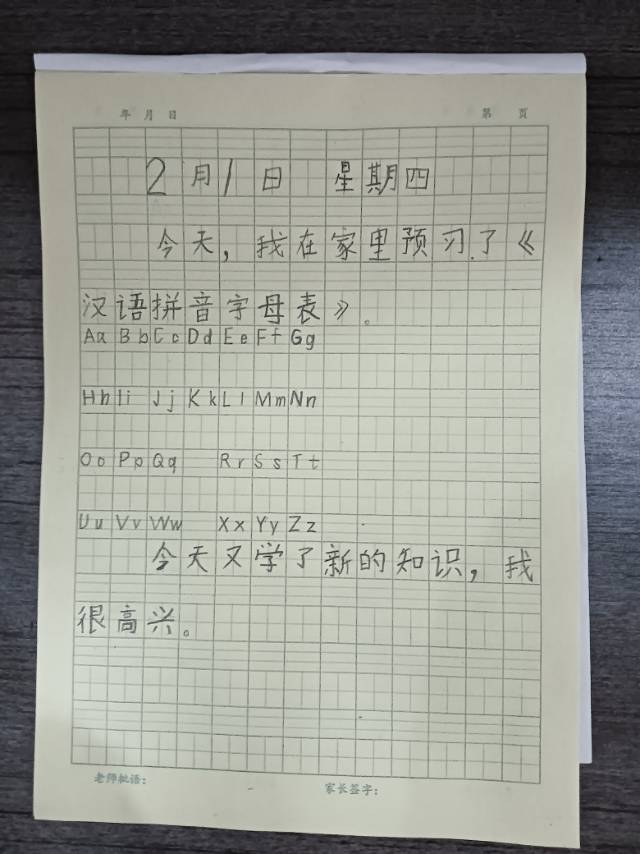 年 月 日 第 页
2月1日 星期四
今天，我在家里预习了《
汉语拼音字母表》。
Aa Bb Cc Dd Ee Ff Gg
Hh Ii Jj Kk Ll Mm Nn
Oo Pp Qq Rr Ss Tt
Uu Vv Ww Xx Yy Zz
今天又学了新的知识，我
很高兴。
老师批语： 家长签字：